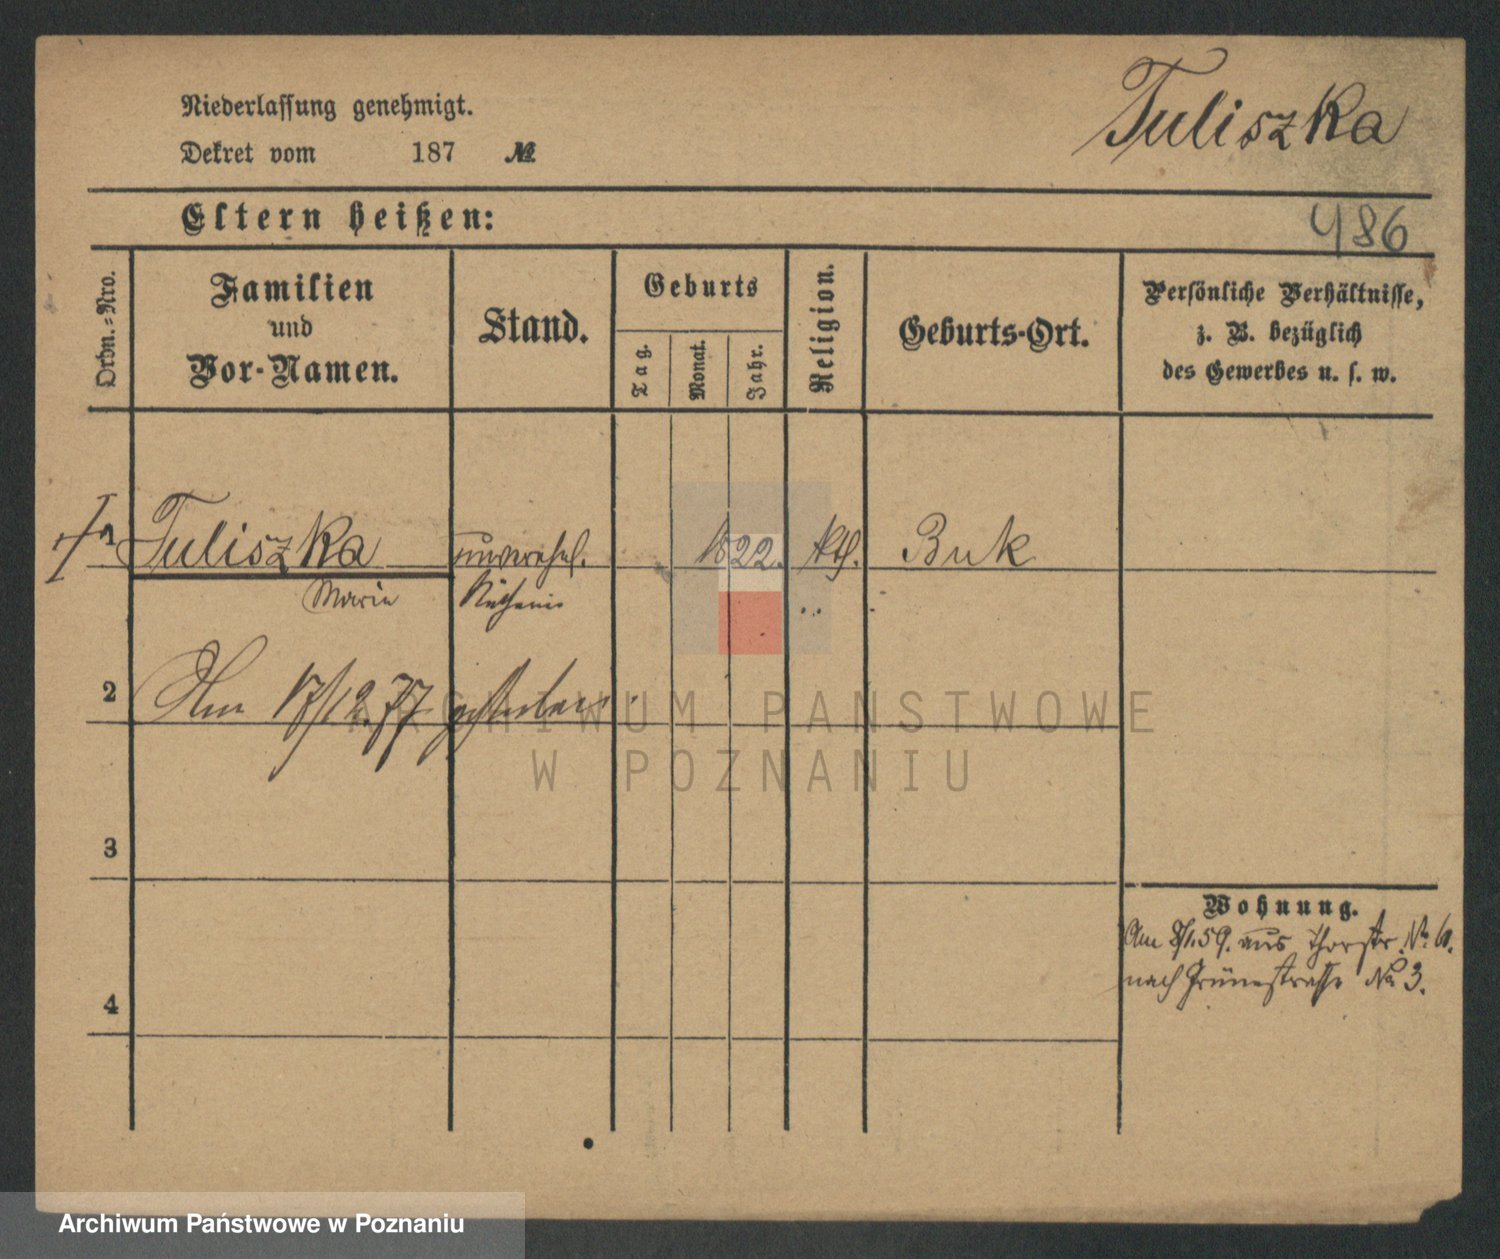 Tuliszka
Niederlassung genehmigt.
Dekret vom 187 №
Eltern heißen:
486
Ordn.-Nro.
Familien
und
Vor-Namen.
Stand.
Geburts
Tag.
Monat.
Jahr.
Religion.
Geburts-Ort.
Persönliche Verhältnisse,
z. B. bezüglich
des Gewerbes u. s. w.
1 Tuliszka unverehel. 1822. kth. Buk
Marie Köchin
2 Am 17/12.77 gestorben.
ARCHIWUM PAŃSTWOWE
W POZNANIU
3
Wohnung.
Am 8/1.59. aus Thorstr. No 6.
nach Grünestrasse No 3.
4
Archiwum Państwowe w Poznaniu